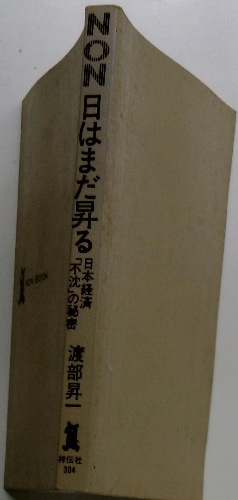 NON
日はまだ昇る
日本経済
「不沈」の秘密
渡部昇一
祥伝社
304
NON BOOK